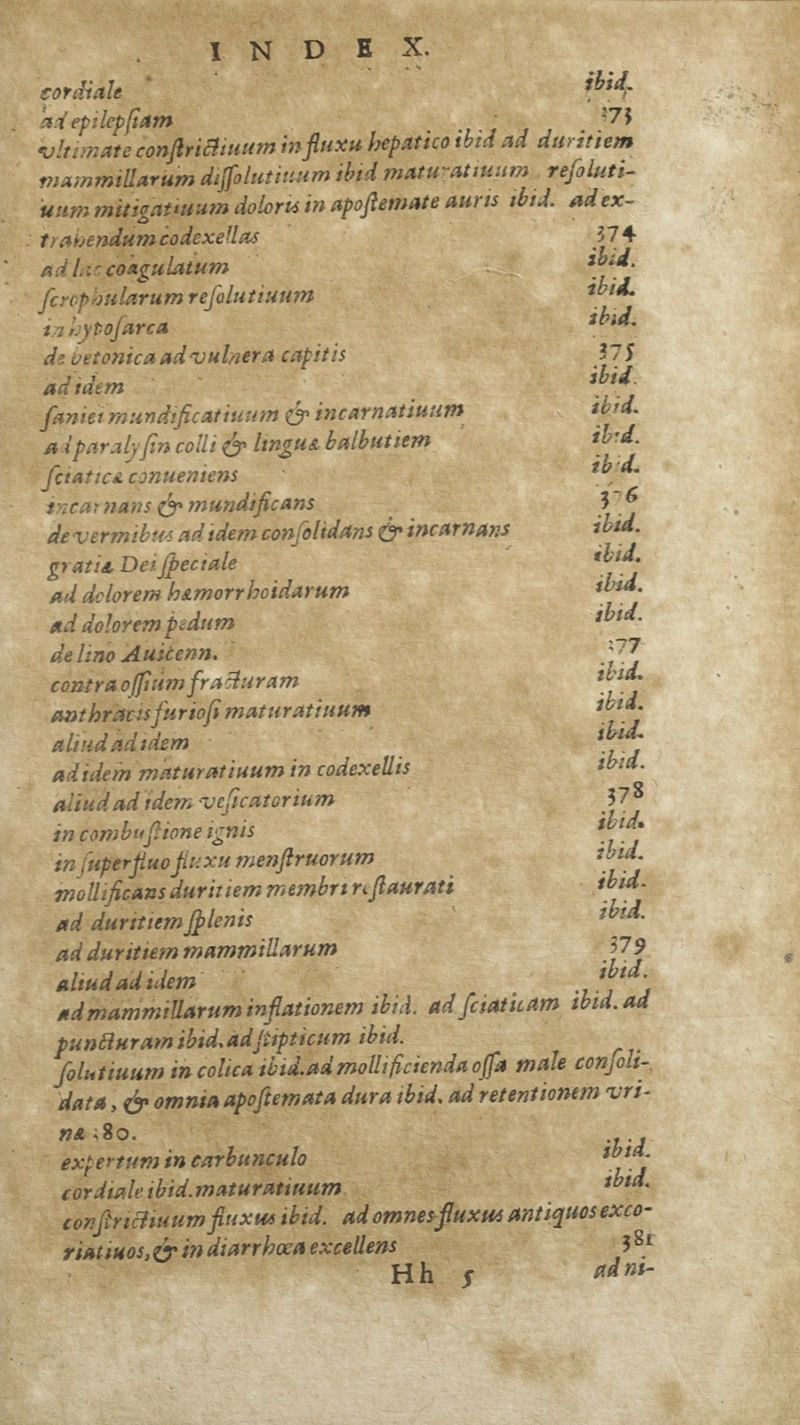 INDEX.
cordiale ibid.
ad epilepſiam 373
vltimate conſtrictiuum in fluxu hepatico ibid ad duritiem
mammillarum diſſolutiuum ibid maturatiuum reſoluti-
uum mitigatiuum doloris in apoſtemate auris ibid. ad ex-
trahendum codexellas 374
ad lac coagulatum ibid.
ſcrophularum reſolutiuum ibid.
in hypoſarca ibid.
de betonica ad vulnera capitis 375
ad idem ibid.
ſaniei mundificatiuum & incarnatiuum ibid.
ad paralyſin colli & linguæ balbutiem ibid.
ſciaticæ conueniens ibid.
incarnans & mundificans 376
de vermibus ad idem conſolidans & incarnans ibid.
gratiæ Dei ſpeciale ibid.
ad dolorem hæmorrhoidarum ibid.
ad dolorem pedum ibid.
de lino Auicenn. 377
contra oſſium fracturam ibid.
anthracis furioſi maturatiuum ibid.
aliud ad idem ibid.
ad idem maturatiuum in codexellis ibid.
aliud ad idem veſicatorium 378
in combuſtione ignis ibid.
in ſuperfluo fluxu menſtruorum ibid.
mollificans duritiem membri reſtaurati ibid.
ad duritiem ſplenis ibid.
ad duritiem mammillarum 379
aliud ad idem ibid.
ad mammillarum inflationem ibid. ad ſciaticam ibid. ad
puncturam ibid. ad ſtipticum ibid.
ſolutiuum in colica ibid. ad mollificienda oſſa male conſoli-
data, & omnia apoſtemata dura ibid. ad retentionem vri-
næ 380.
expertum in carbunculo ibid.
cordiale ibid. maturatiuum ibid.
conſtrictiuum fluxus ibid. ad omnes fluxus antiquos exco-
riatiuos, & in diarrhœa excellens 381
Hh 5 ad ni-